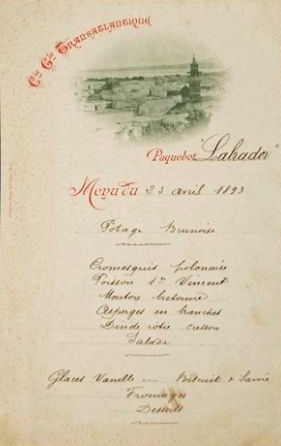 Cie Gle Transatlantique
Paquebot "Labrador"
Menu du 23 avril 1893
Potage Brunoise
Cromesquis polonaise
Poisson St Vincent
Mouton bretonne
Asperges en branches
Dinde rôtie cresson
Salade
Glaces Vanille – Biscuit d Savoie
Fromages
Desserts